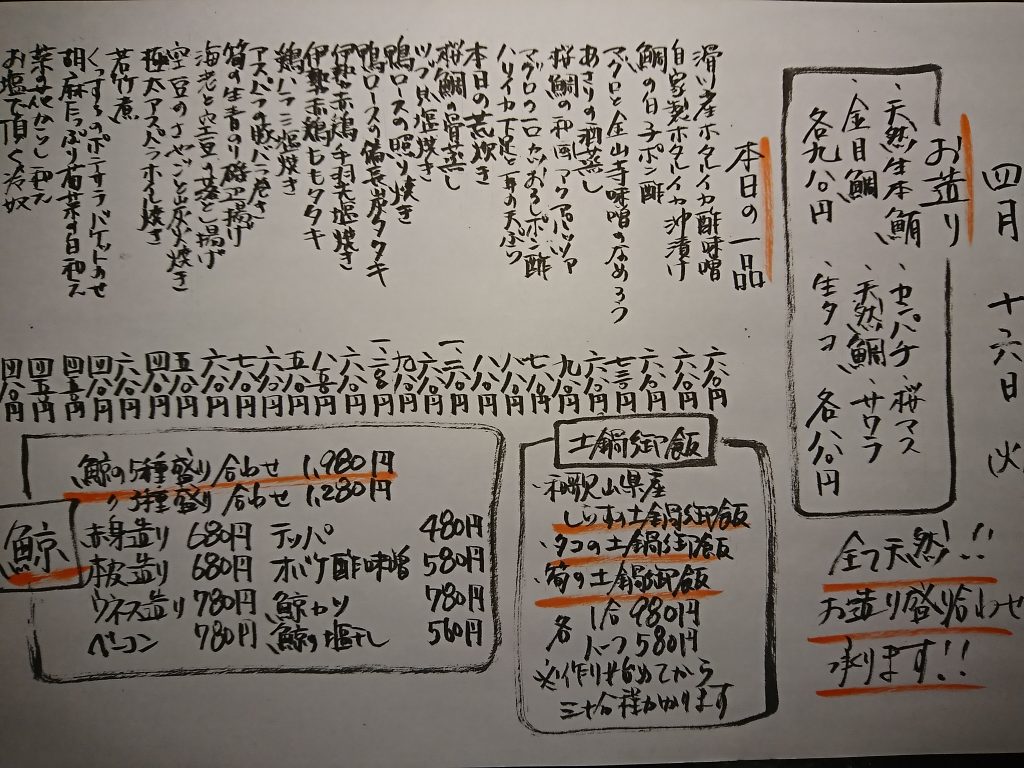 四月 十六日 火
お造り
・天然生本鮪
・金目鯛
各九八〇円
・カンパチ ・桜マス
・天然鯛 ・サワラ
・生タコ 各八八〇円
全て天然!!
お造り盛り合わせ
承ります!!
本日の一品
滑川産ホタルイカ酢味噌 六八〇円
自家製ホタルイカ沖漬け 六八〇円
鯛の白子ポン酢 六八〇円
マグロと金山寺味噌のなめろう 七三〇円
あさりの酒蒸し 六八〇円
桜鯛の和風アクアパッツァ 九八〇円
マグロの一口カツおろしポン酢 七八〇円
ハリイカ下足と の天ぷら 八八〇円
本日の荒炊き 八八〇円
桜鯛の骨蒸し
ツブ貝塩焼き 六八〇円
鴨ロースの照り焼き 九八〇円
鴨ロースの備長炭タタキ
伊勢赤鶏手羽塩焼き 六八〇円
伊勢赤鶏ももタタキ 八五〇円
鶏ハラミ塩焼き 五八〇円
アスパラの豚バラ巻き 六八〇円
筍の生青のり磯辺揚げ 七八〇円
海老と空豆 揚げ 六八〇円
空豆のさやごと炭火焼き 五八〇円
極太アスパラホイル焼き 四八〇円
若竹煮 六八〇円
くんせいポテサラバゲットのせ 四八〇円
胡麻たっぷり菊菜の白和え 四八〇円
菜な花からし和え 四五〇円
お塩で頂く冷奴 四八〇円
土鍋御飯
・和歌山県産
しらすの土鍋御飯
・タコの土鍋御飯
・筍の土鍋御飯
各 1合 980円
ハーフ 580円
※作り始めてから
三十分程かかります
鯨
鯨の5種盛り合わせ 1,980円
〃 3種盛り合わせ 1,280円
赤身造り 680円 テッパ 480円
本皮造り 680円 オバケ酢味噌 580円
ウネス造り 780円 鯨カツ 780円
ベーコン 780円 鯨の塩干し 560円